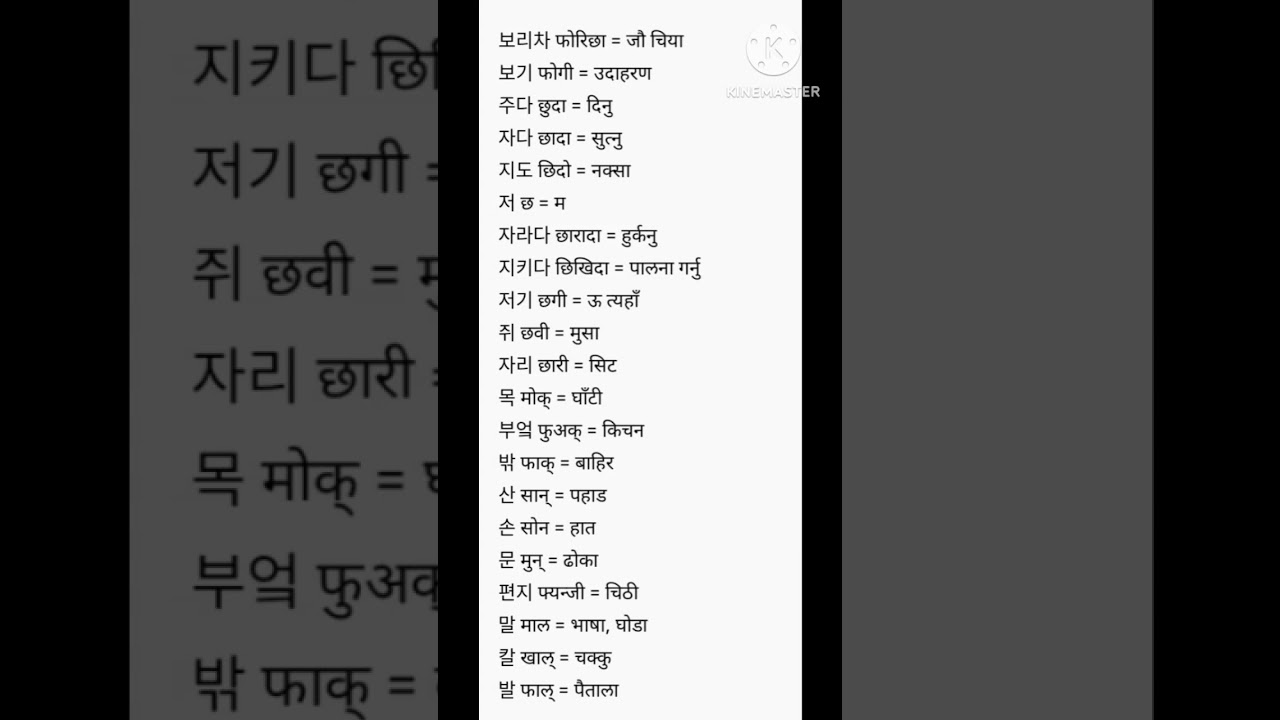 보리차 फोरिछा = जौ चिया
보기 फोगी = उदाहरण
주다 छुदा = दिनु
자다 छादा = सुत्नु
지도 छिदो = नक्सा
저 छ = म
자라다 छारादा = हुर्कनु
지키다 छिखिदा = पालना गर्नु
저기 छगी = ऊ त्यहाँ
쥐 छवी = मुसा
자리 छारी = सिट
목 मोक् = घाँटी
부엌 फुअक् = किचन
밖 फाक् = बाहिर
산 सान् = पहाड
손 सोन = हात
문 मुन् = ढोका
편지 फ्यन्जी = चिठी
말 माल = भाषा, घोडा
칼 खाल् = चक्कु
발 फाल् = पैताला
KINEMASTER
지키다
저기 छगी =
쥐 छवी =
자리 छारी
목 मोक् =
부엌 फुअक्
밖 फाक् =